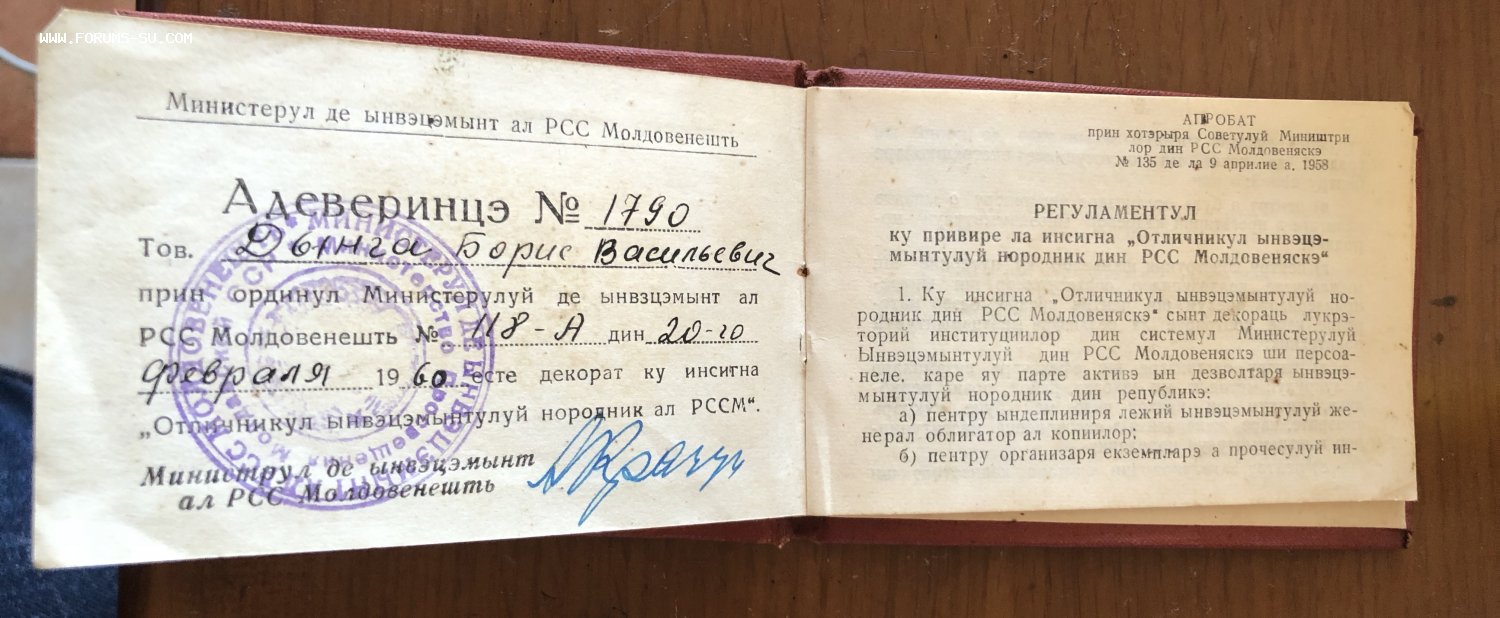 WWW.FORUMS-SU.COM
Министерул де ынвэцэмынт ал РСС Молдовенешть
Адеверинцэ № 1790
Тов. Дынга Борис Васильевич
прин ординул Министерулуй де ынвзцэмынт ал
РСС Молдовенешть № 118-А дин 20-го
февраля 1960 есте декорат ку инсигна
„Отличникул ынвэцэмынтулуй нородник ал РССМ“.
Министрул де ынвэцэмынт
ал РСС Молдовенешть
АПРОБАТ
прин хотэрыря Советулуй Миништри
лор дин РСС Молдовеняскэ
№ 135 де ла 9 априлие а. 1958
РЕГУЛАМЕНТУЛ
ку привире ла инсигна „Отличникул ынвэцэ-
мынтулуй нородник дин РСС Молдовеняскэ“
1. Ку инсигна „Отличникул ынвэцэмынтулуй но-
родник дин РСС Молдовеняскэ“ сынт декораць лукрэ-
торий институциилор дин системул Министерулуй
Ынвэцэмынтулуй дин РСС Молдовеняскэ ши персоа-
неле, каре яу парте активэ ын дезволтаря ынвэцэ-
мынтулуй нородник дин републикэ:
а) пентру ындеплиниря лежий ынвэцэмынтулуй же-
нерал облигатор ал копиилор;
б) пентру организаря екземпларэ а прочесулуй ин-